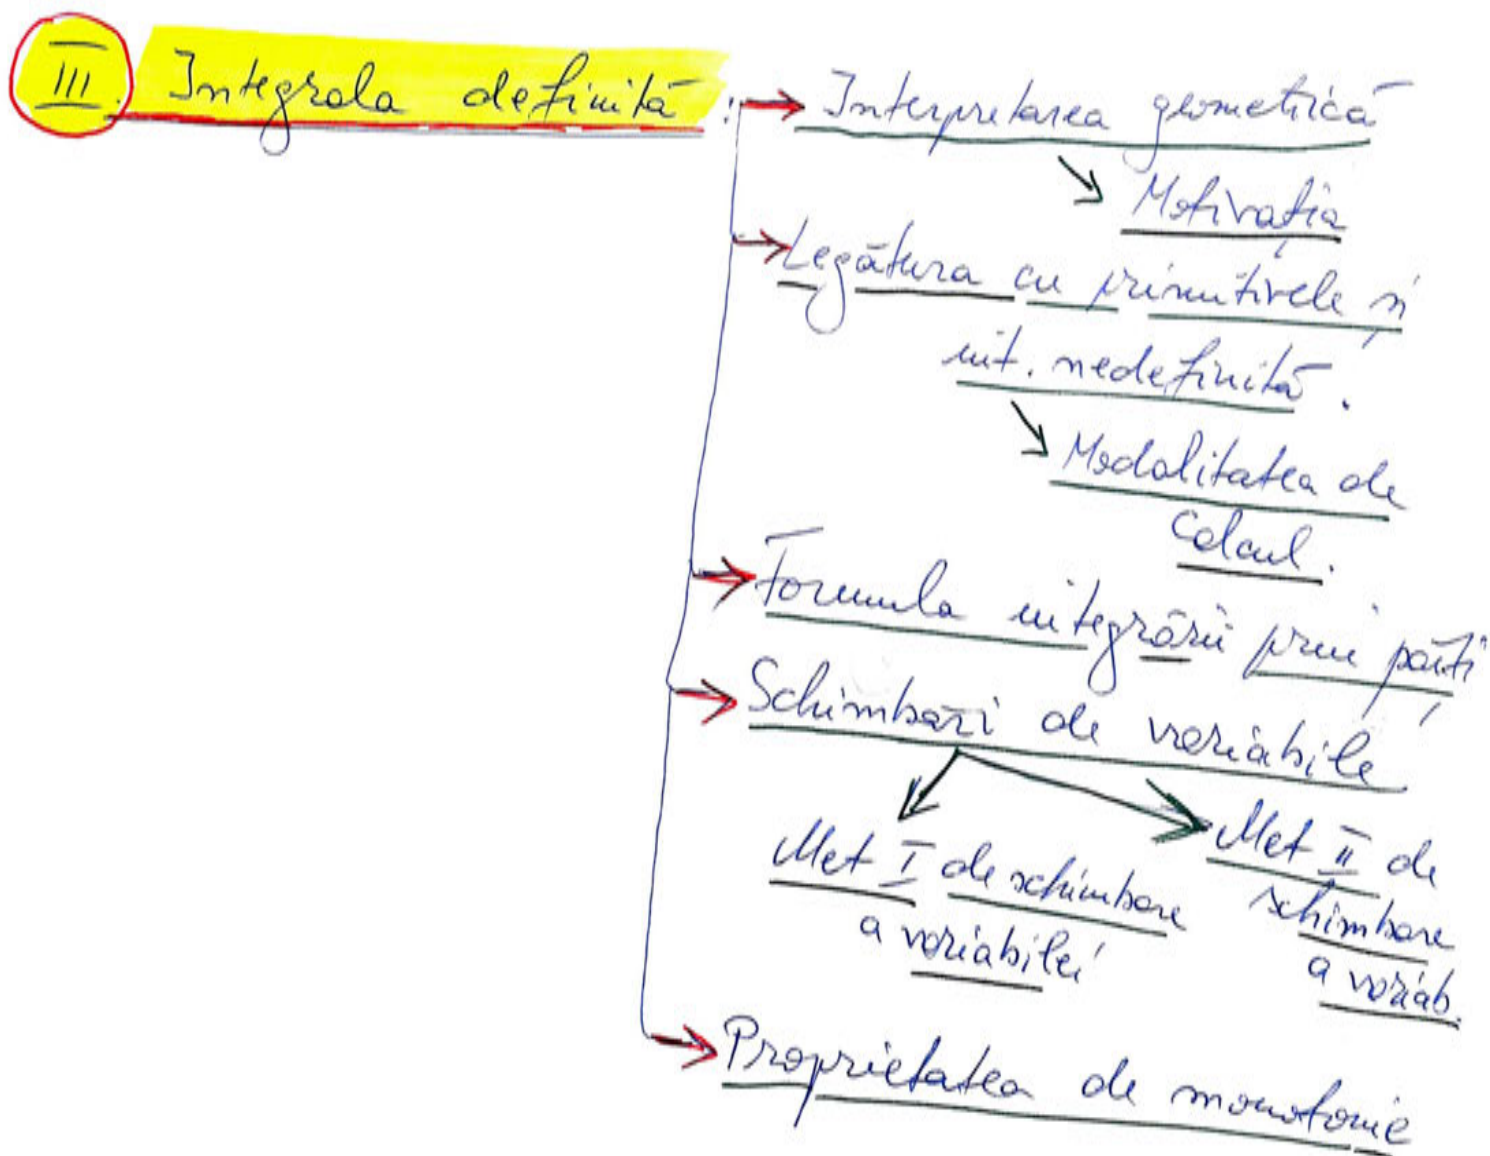 III. Integrala definită :
Interpretarea geometrică
Motivația
Legătura cu primitivele și
int. nedefinită.
Modalitatea de
calcul.
Formula integrării prin părți
Schimbări de variabile
Met I de schimbare
a variabilei
Met II de
schimbare
a variab.
Proprietatea de monotonie